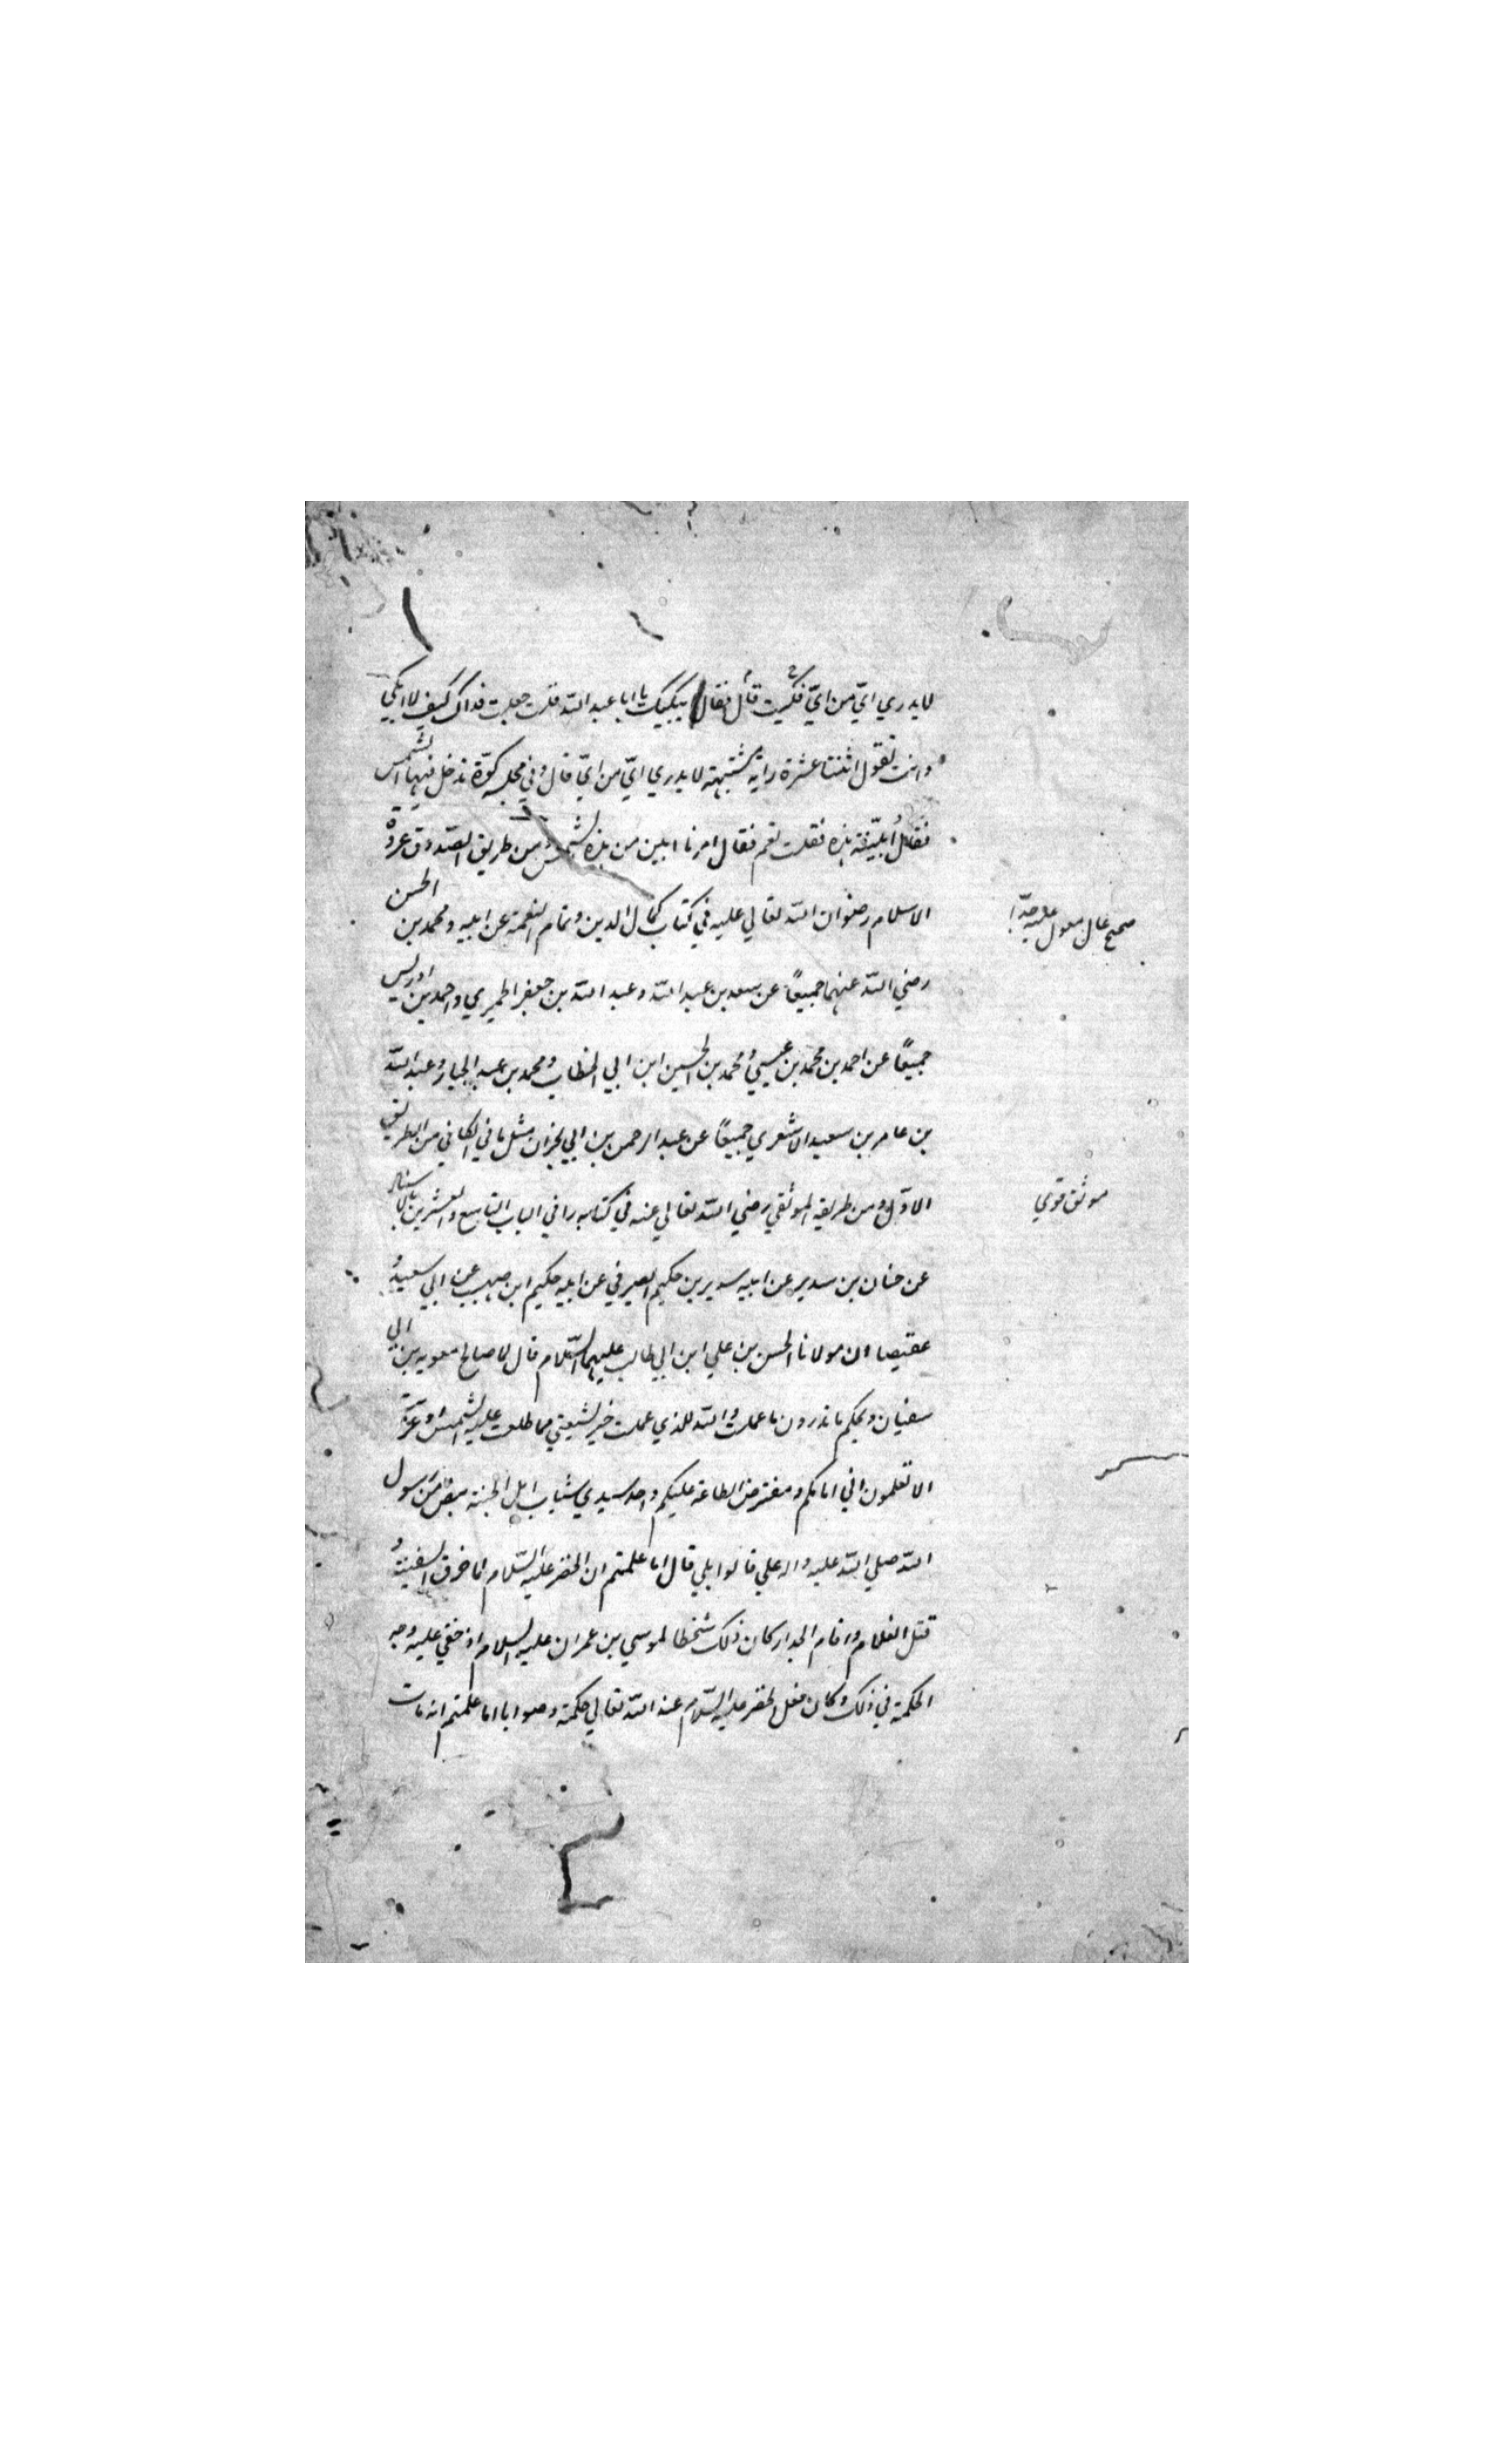 لا يدري ايّ من ايّ فبكيت قال فقال ما يبكيك يا ابا عبد الله قلت جعلت فداك كيف لا ابكي
وانت تقول اثنتا عشرة راية مشتبهة لا يدري ايّ من ايّ قال وفي مجلسه كوّة تدخل فيها الشمس
فقال أبيّنة هذه فقلت نعم فقال امرنا ابين من هذه الشمس ومن طريق الصدوق عروة
الاسلام رضوان الله تعالي عليه في كتاب كمال الدين وتمام النعمة عن ابيه ومحمد بن الحسن
رضي الله عنهما جميعًا عن سعد بن عبد الله وعبد الله بن جعفر الحميري واحمد بن ادريس
جميعًا عن احمد بن محمد بن عيسي ومحمد بن الحسين ابن ابي الخطاب ومحمد بن عبد الجبار وعبد الله
بن عامر بن سعيد الاشعري جميعًا عن عبد الرحمن بن ابي نجران مثل ما في الكافي من الطريق
الاوّل ومن طريقه الموثقي رضي الله تعالي عنه في كتابه في الباب التاسع والعشرين بالاسناد
عن حنان بن سدير عن ابيه سدير بن حكيم الصيرفي عن ابيه حكيم ابن صهيب عن ابي سعيد
عقيصا ان مولانا الحسن بن علي ابن ابي طالب عليهما السّلام قال لما صالح معويه بن ابي
سفيان ويحكم ما تدرون ما عملت والله للذي عملت خير لشيعتي مما طلعت عليه الشمس او غربت
الا تعلمون اني امامكم ومفترض الطاعة عليكم واحد سيدي شباب اهل الجنة بنص من رسول
الله صلي الله عليه واله علي قالوا بلي قال اما علمتم ان الخضر عليه السّلام لما خرق السفينة و
قتل الغلام واقام الجدار كان ذلك سخطا لموسي بن عمران عليه السلام اذ خفي عليه وجه
الحكمة في ذلك وكان فعل الخضر عليه السّلام عند الله تعالي حكمة وصوابا اما علمتم انه مات
صحيح عال معول عليه جدًّا
موثق قوي